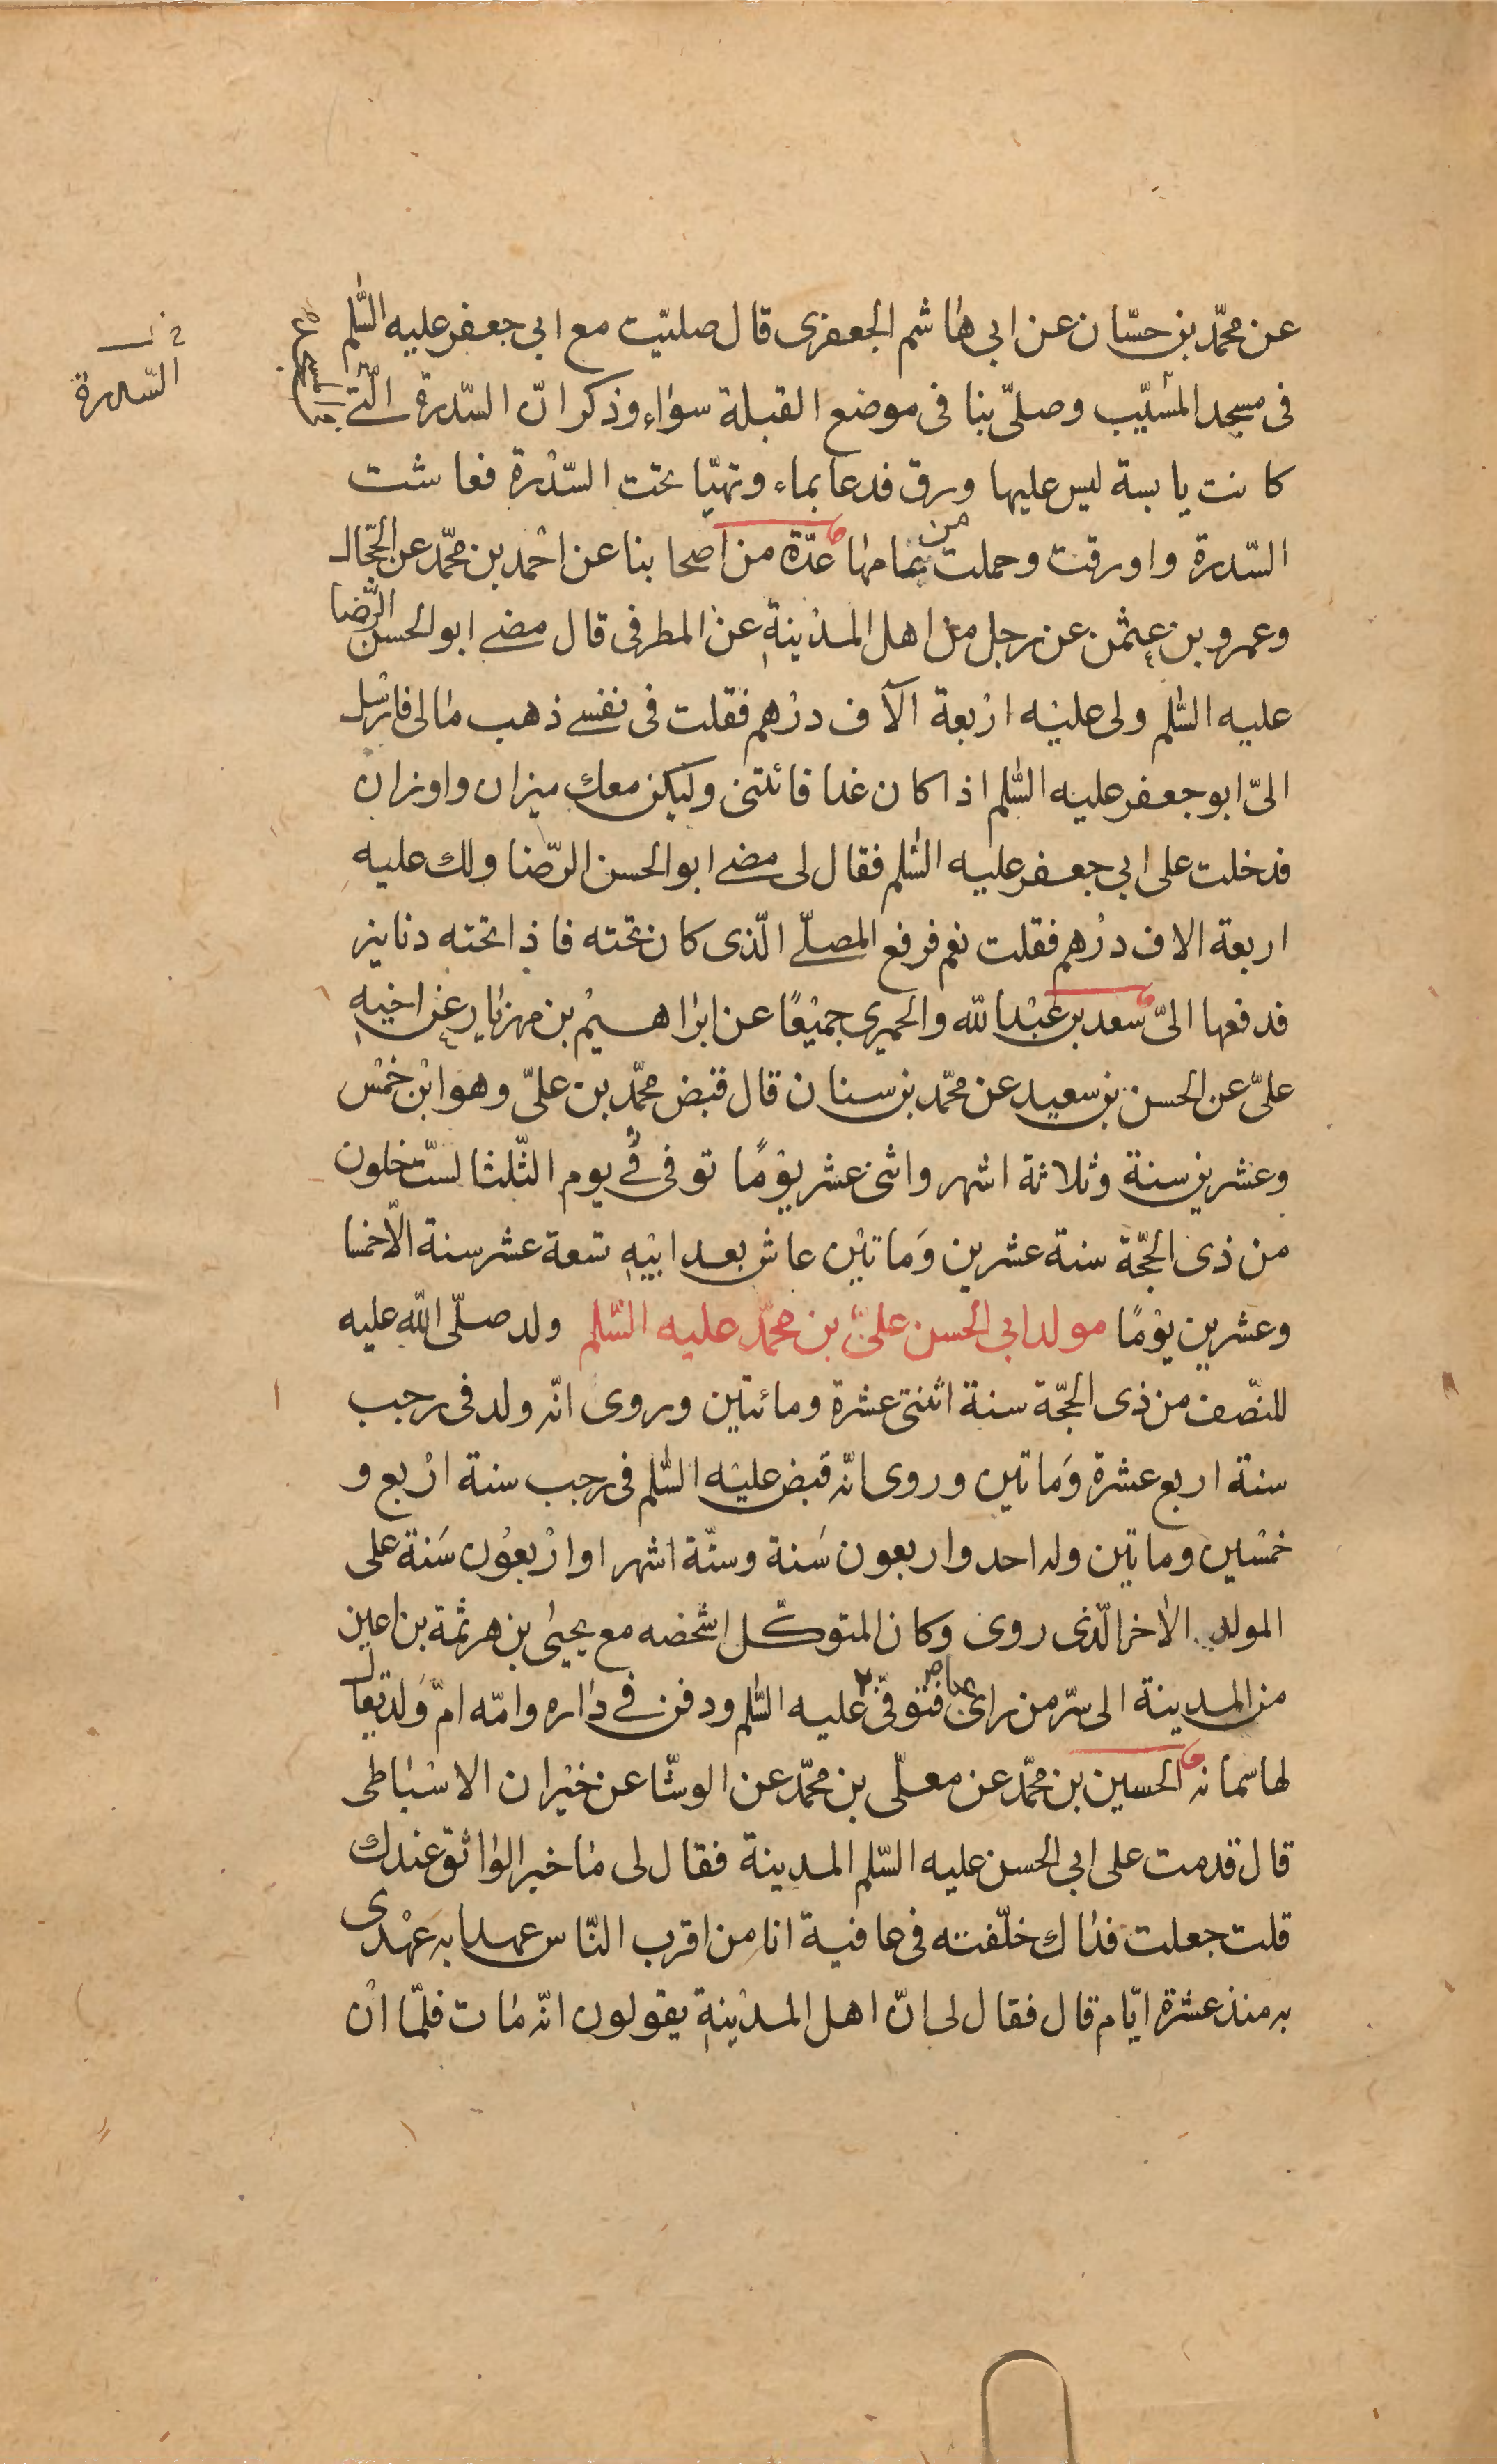 عن محمّد بن حسّان عن ابي هاشم الجعفرى قال صليّت مع ابي جعفر عليه السّلم
فى مسجد المسيّب وصلّى بنا فى موضع القبلة سواء وذكر انّ السّدرة الّتى
كانت يابسة ليس عليها ورق فدعا بماء وتهيّا تحت السّدرة فعاشت
السّدرة واورقت وحملت من عامها عدّة من اصحابنا عن احمد بن محمّد عن الحجّال
وعمرو بن عثمن عن رجل من اهل المدينة عن المطرفى قال مضى ابو الحسن الرّضا
عليه السّلم ولى عليه اربعة الآف درهم فقلت فى نفسى ذهب مالى فارسل
الىّ ابو جعفر عليه السّلم اذا كان غدا فائتنى وليكن معك ميزان واوزان
فدخلت على ابي جعفر عليه السّلم فقال لى مضى ابو الحسن الرّضا ولك عليه
اربعة الاف درهم فقلت نعم فرفع المصلّى الّذى كان تحته فاذا تحته دنانير
فدفعها الىّ سعد بن عبد الله والحميرى جميعًا عن ابراهيم بن مهزيار عن اخيه
علىّ عن الحسن بن سعيد عن محمّد بن سنان قال قبض محمّد بن علىّ وهو ابن خمس
وعشرين سنة وثلاثة اشهر واثنى عشر يومًا توفى فى يوم الثّلثا لستّ خلون
من ذى الحجّة سنة عشرين وماتين عاش بعد ابيه تسعة عشر سنة الّا خمسا
وعشرين يومًا مولد ابي الحسن علىّ بن محمّد عليه السّلم ولد صلّى الله عليه
للنّصف من ذى الحجّة سنة اثنتى عشرة ومائتين وروى انّه ولد فى رجب
سنة اربع عشرة وماتين وروى انّه قبض عليه السّلم فى رجب سنة اربع و
خمسين وماتين وله احد واربعون سنة وستّة اشهر او اربعون سنة على
المولد الاخر الّذى روى وكان المتوكّل اشخصه مع يحيى بن هرثمة بن اعين
من المدينة الى سرّ من راى فتوفّى بها عليه السّلم ودفن فى داره وامّه امّ ولد يقال
لها سمانه الحسين بن محمّد عن معلّى بن محمّد عن الوشّا عن خيران الاسباطى
قال قدمت على ابي الحسن عليه السّلم المدينة فقال لى ما خبر الواثق عندك
قلت جعلت فداك خلّفته فى عافية انا من اقرب النّاس عهدا به عهدى
به منذ عشرة ايّام قال فقال لى انّ اهل المدينة يقولون انّه مات فلمّا ان
السّدرة